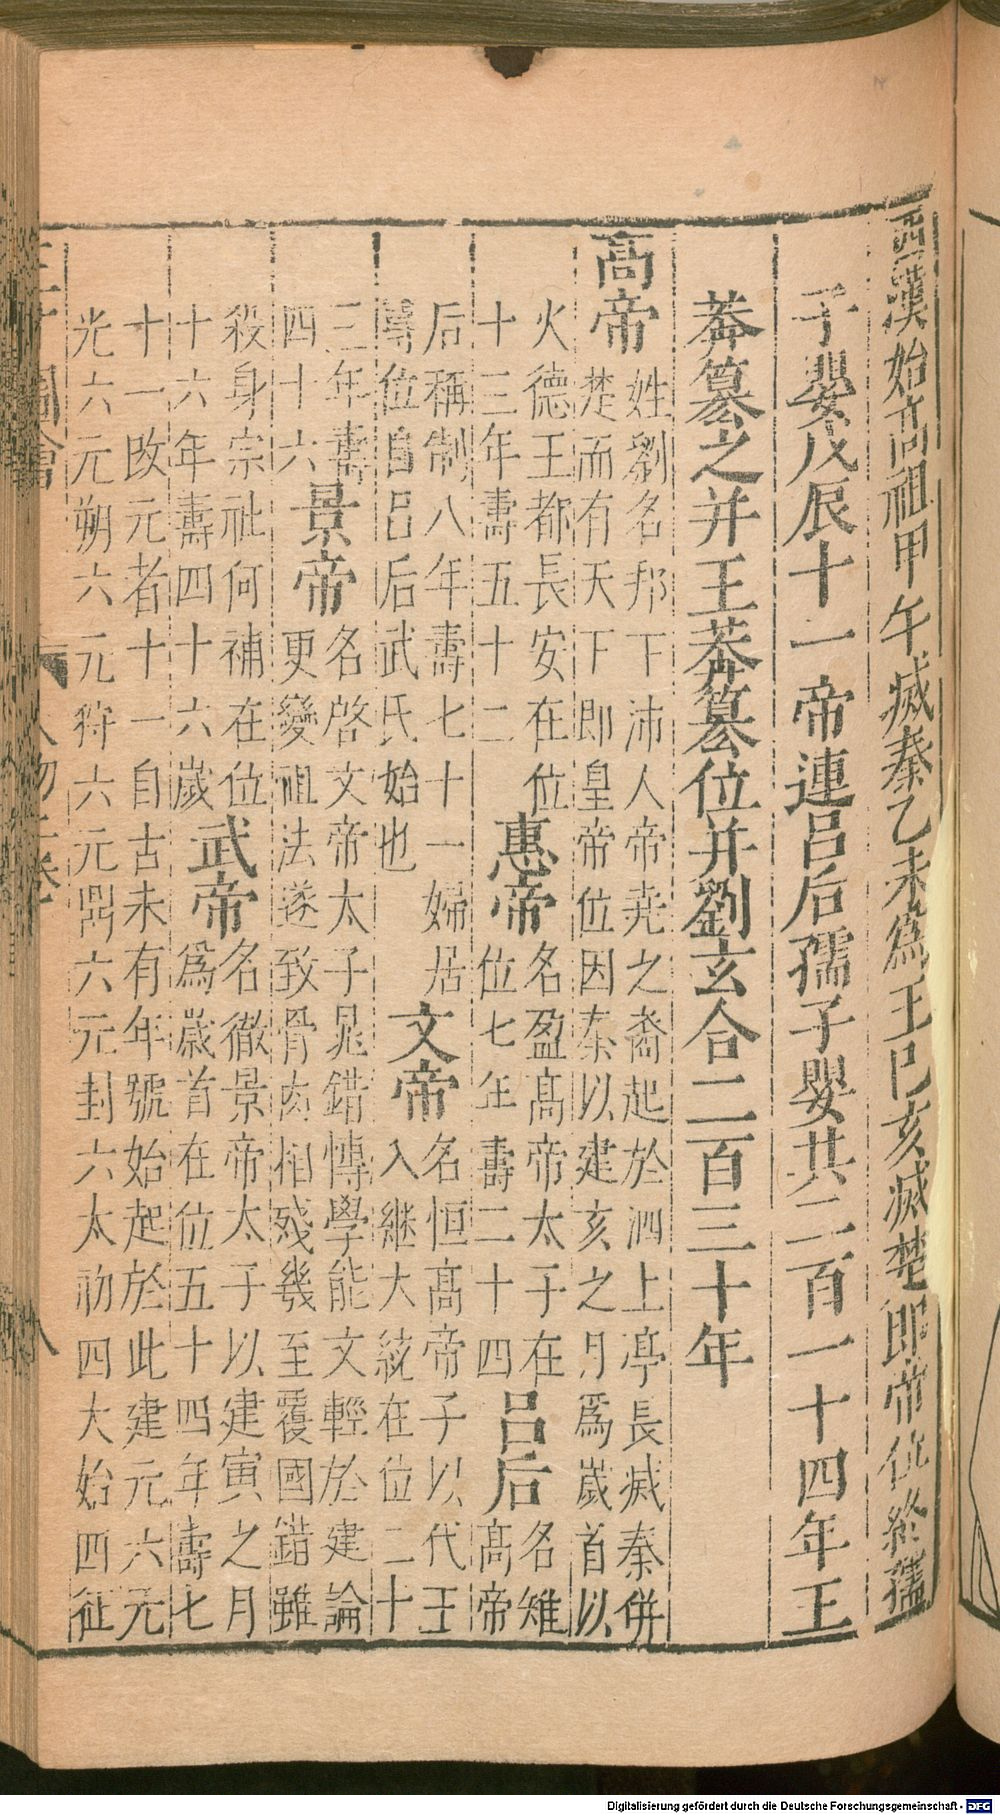 西漢始高祖甲午滅秦乙未爲王巳亥滅楚即帝位終孺
子嬰戊辰十一帝連呂后孺子嬰共二百一十四年王
莽篡之并王莽篡位并劉玄合二百三十年
高帝
姓劉名邦下沛人帝尭之裔起於泗上亭長滅秦併
楚而有天下即皇帝位因秦以建亥之月爲嵗首以
火德王都長安在位
十三年壽五十二
惠帝
名盈髙帝太子在
位七年壽二十四
呂后
名雉
髙帝
后稱制八年壽七十一婦居
尊位自呂后武氏始也
文帝
名恒髙帝子以代王
入継大統在位二十
三年壽
四十六
景帝
名啓文帝太子晁錯愽學能文輕於建論
更變祖法遂致骨肉相殘幾至覆國錯雖
殺身宗祉何補在位
十六年壽四十六嵗
武帝
名徹景帝太子以建寅之月
爲嵗首在位五十四年壽七
十一攺元者十一自古未有年號始起於此建元六元
光六元朔六元狩六元鼎六元封六太初四大始四征
三才圖會
人物二卷
八
Digitalisierung gefördert durch die Deutsche Forschungsgemeinschaft - DFG